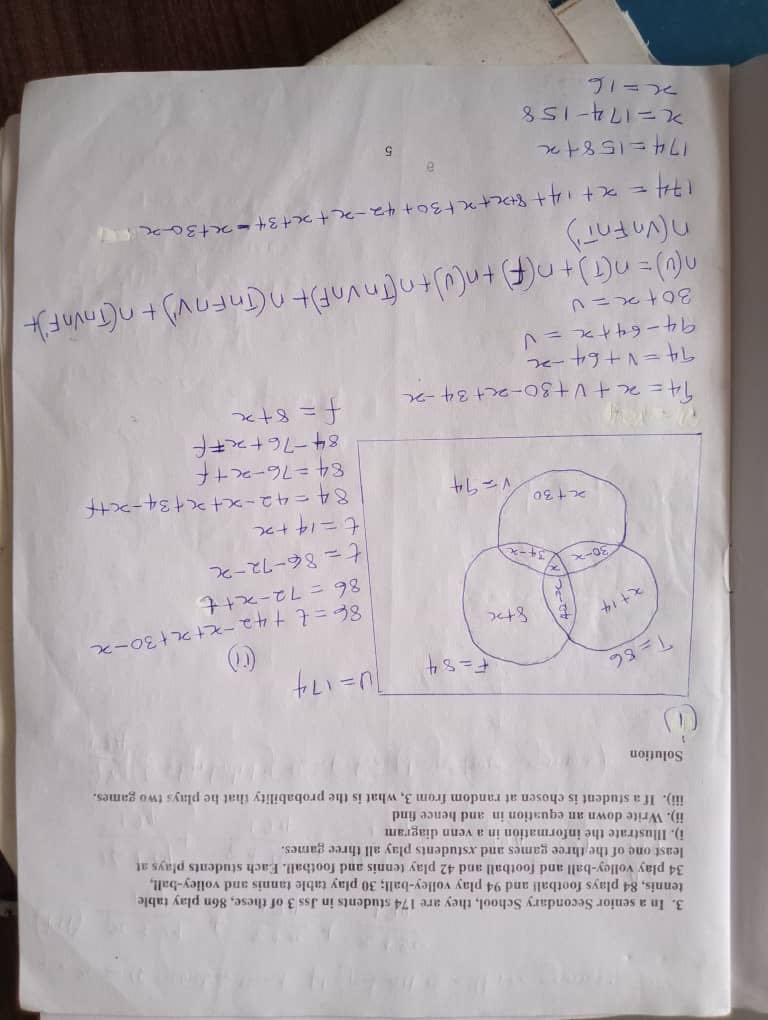 3. In a senior Secondary School, they are 174 students in Jss 3 of these, 86n play table
tennis, 84 plays football and 94 play volley-ball; 30 play table tannis and volley-ball,
34 play volley-ball and football and 42 play tennis and football. Each students plays at
least one of the three games and xstudents play all three games.
i). Illustrate the information in a venn diagram
ii). Write down an equation in and hence find
iii). If a student is chosen at random from 3, what is the probability that he plays two games.
Solution
(i)
U = 174
T = 86
F = 84
x + 14
42 - x
8 + x
x
30 - x
34 - x
x + 30
V = 94
(ii)
86 = t + 42 - x + x + 30 - x
86 = 72 - x + t
t = 86 - 72 - x
t = 14 + x
84 = 42 - x + x + 34 - x + f
84 = 76 - x + f
84 - 76 + x = f
f = 8 + x
94 = x + V + 30 - x + 34 - x
94 = V + 64 - x
94 - 64 + x = V
30 + x = V
n(U) = n(T) + n(F) + n(V) + n(TnVnF) + n(TnFnV') + n(TnVnF') +
n(VnFnT')
174 = x + 14 + 8 + x + x + 30 + 42 - x + x + 34 - x + 30 - x
174 = 158 + x
x = 174 - 158
x = 16
5